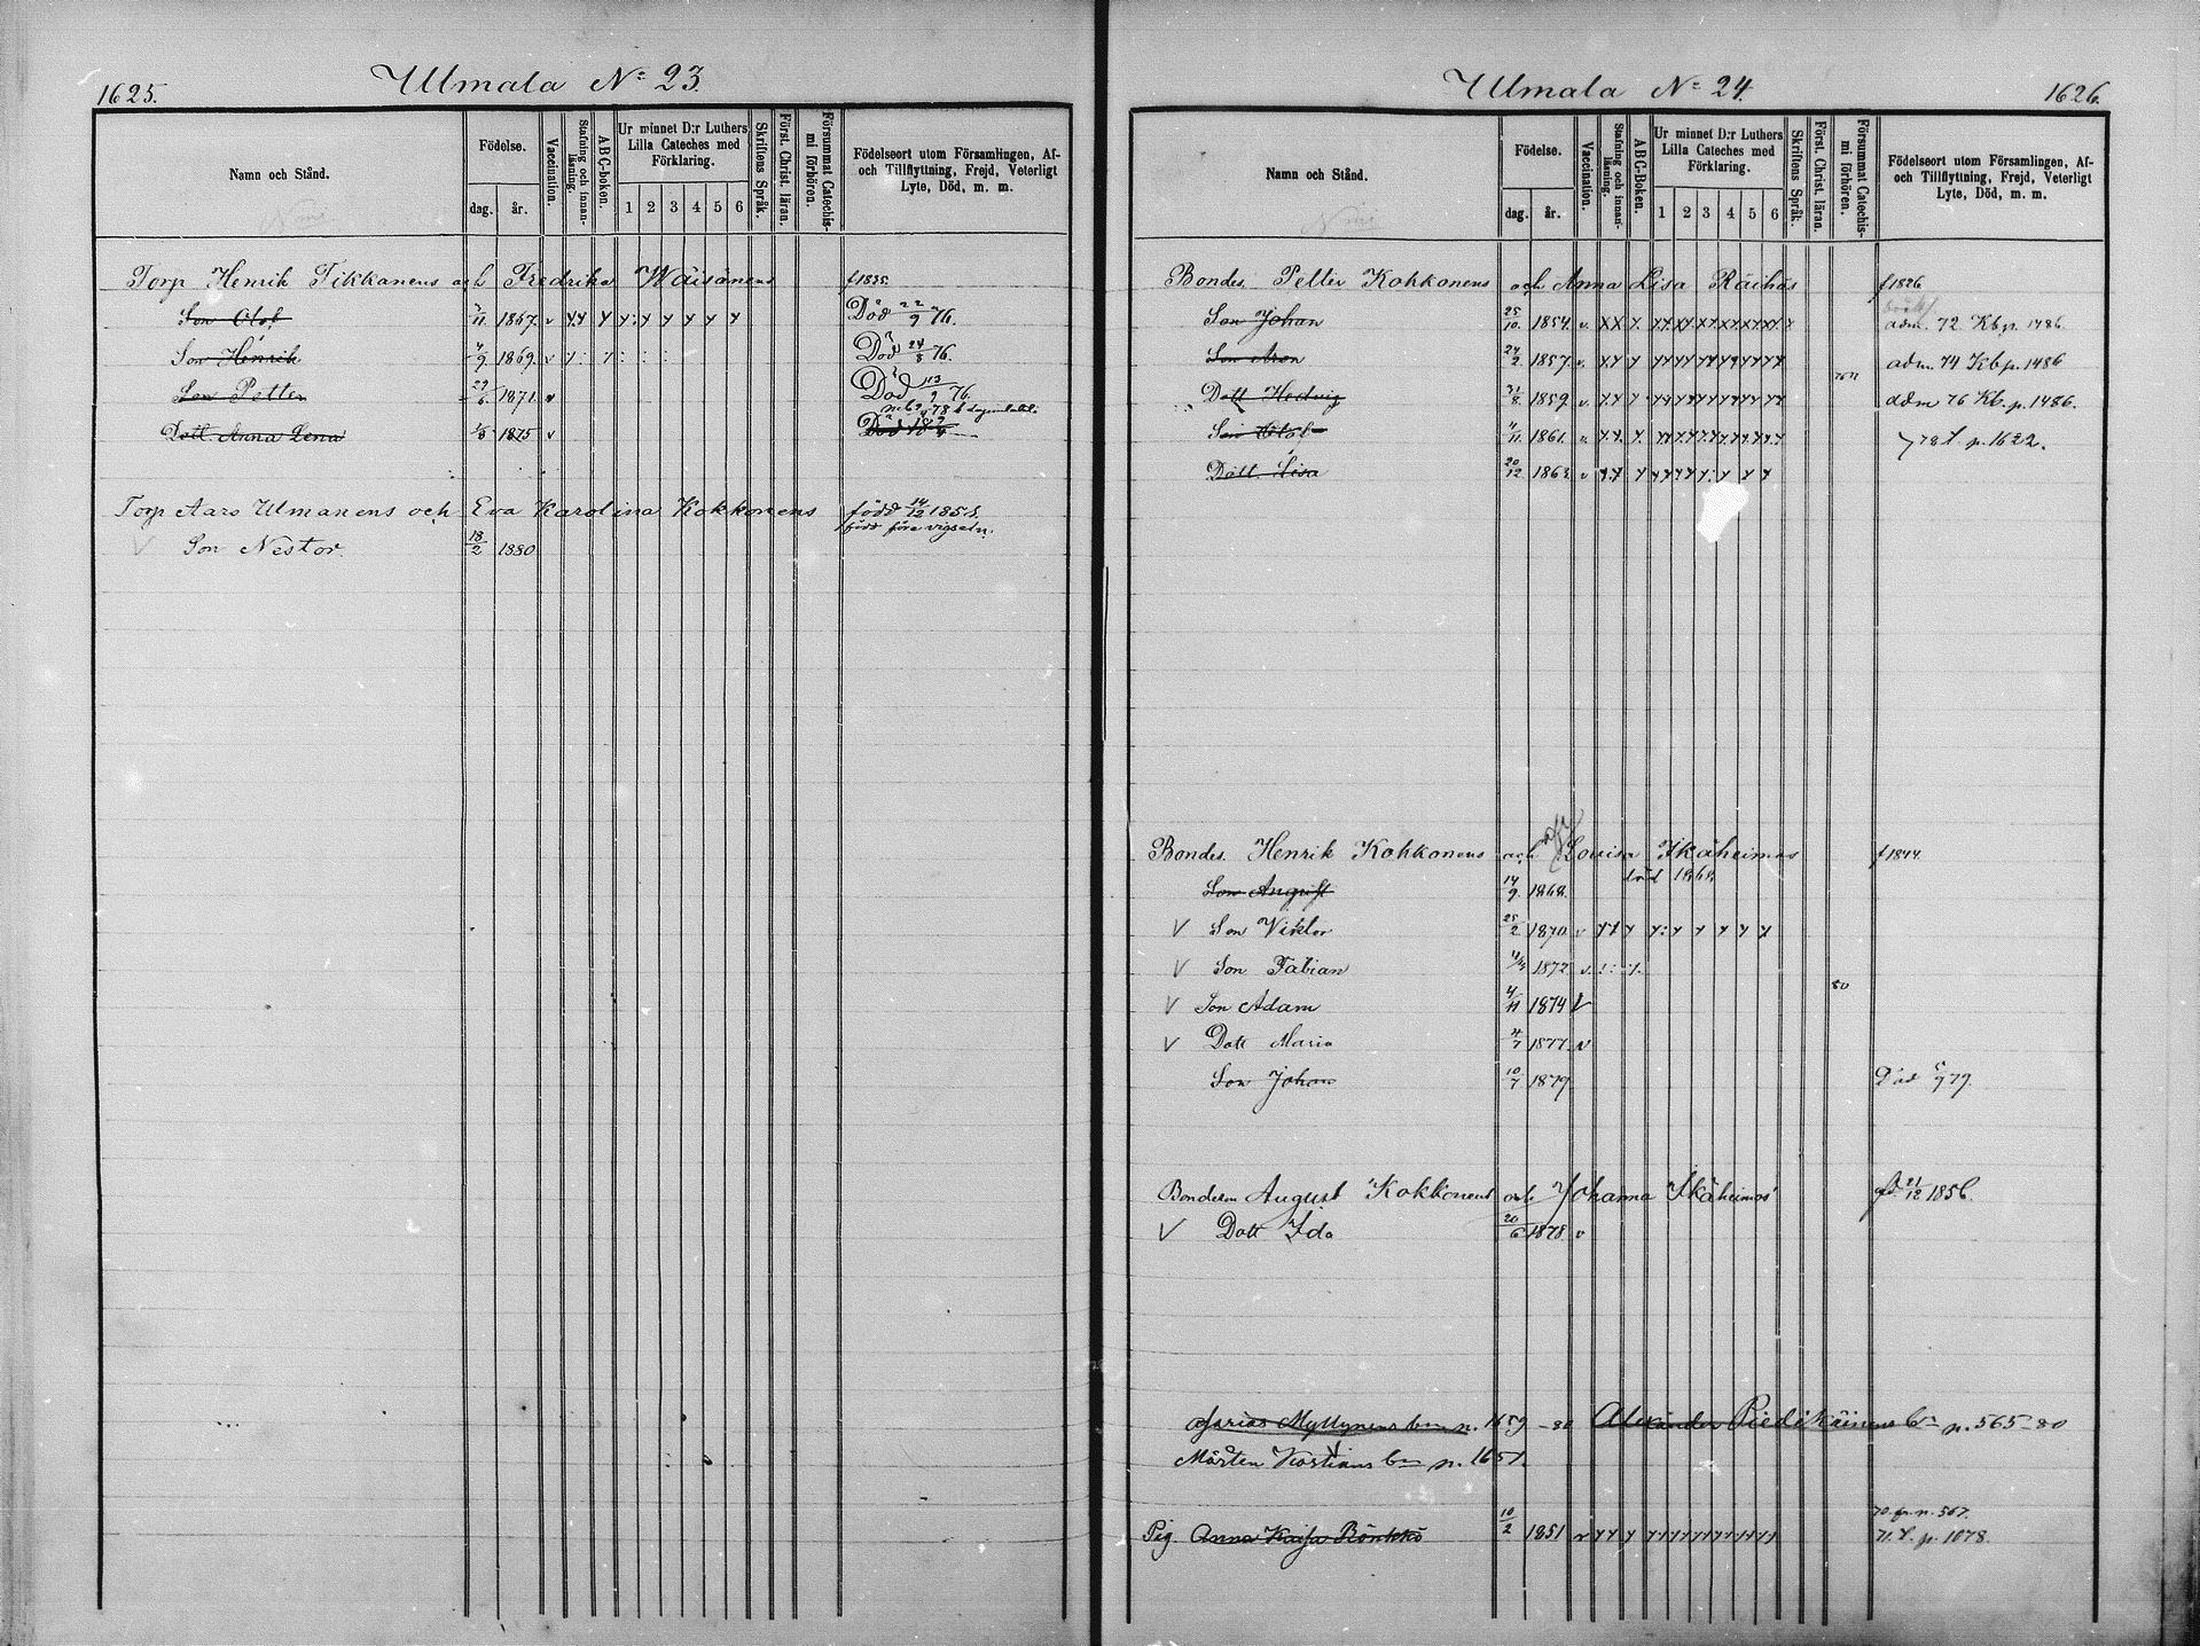 1625.
Ulmala No 23.
Namn och Stånd.
Födelse.
dag. år.
Vaccination.
Stafning och innan-läsning.
ABC-boken.
Ur minnet D:r Luthers
Lilla Cateches med
Förklaring.
1 2 3 4 5 6
Skriftens Språk.
Först. Christ. läran.
Försummat Catechis-mi förhören.
Födelseort utom Församlingen, Af-
och Tillflyttning, Frejd, Veterligt
Lyte, Död, m. m.
Torp Henrik Tikkanens och Fredrika Wäisänens f 1835.
Son Olof 3/11 1867. v y.y y y:y y y y y Död 22/9 76.
Son Henrik 4/9 1869. v Död 24/8 76.
Son Petter 27/6 1871. v Död 113/9 76.
Dott. Anna Lena 1875 v Död
Torp Aaro Ulmanens och Eva Karolina Kokkonens född 14/12 185
född före vigseln.
V Son Nestor. 18/2 1880
Ulmala No 24.
1626.
Namn och Stånd.
Födelse.
dag. år.
Vaccination.
Stafning och innan-läsning.
ABC-Boken.
Ur minnet D:r Luthers
Lilla Cateches med
Förklaring.
1 2 3 4 5 6
Skriftens Språk.
Först. Christ. läran.
Försummat Catechis-mi förhören.
Födelseort utom Församlingen, Af-
och Tillflyttning, Frejd, Veterligt
Lyte, Död, m. m.
Bondes. Petter Kokkonens och Anna Lisa Räihäs f 1826
Son Johan 25/10. 1854. v. adm. 72 Kb p. 1486.
Son Aron 24/2. 1857. v. adm. 74 Kb p. 1486
Dott Hedvig 31/8. 1859. v. adm 76 Kb. p. 1486.
Son Olof 4/11. 1861. v. 78 f. p. 1622.
Dott. Lisa 20/12 1863 v
Bondes. Henrik Kokkonens och Lovisa Ikäheimos f 1844.
Son August 14/9. 1868. död 1868
V Son Viktor 25/2 1870. v
V Son Fabian 1872 v.
V Son Adam 4/11 1874 V
V Dott Maria 4/7 1877. v
Son Johan 10/7 1879 Död 5/9 79.
Bondeson August Kokkonens och Johanna Ikäheimos fd 21/12 1856.
V Dott Ida 20/6 1878 v
Myllynens bm p. 1659 - 80 Alexander Piedikäinens bm p. 565 - 80
Mårten bm p. 1651.
70. fr. p. 567.
Pig. Anna Kaisa Rönkkö 10/2 1851 v 71. f. p. 1078.